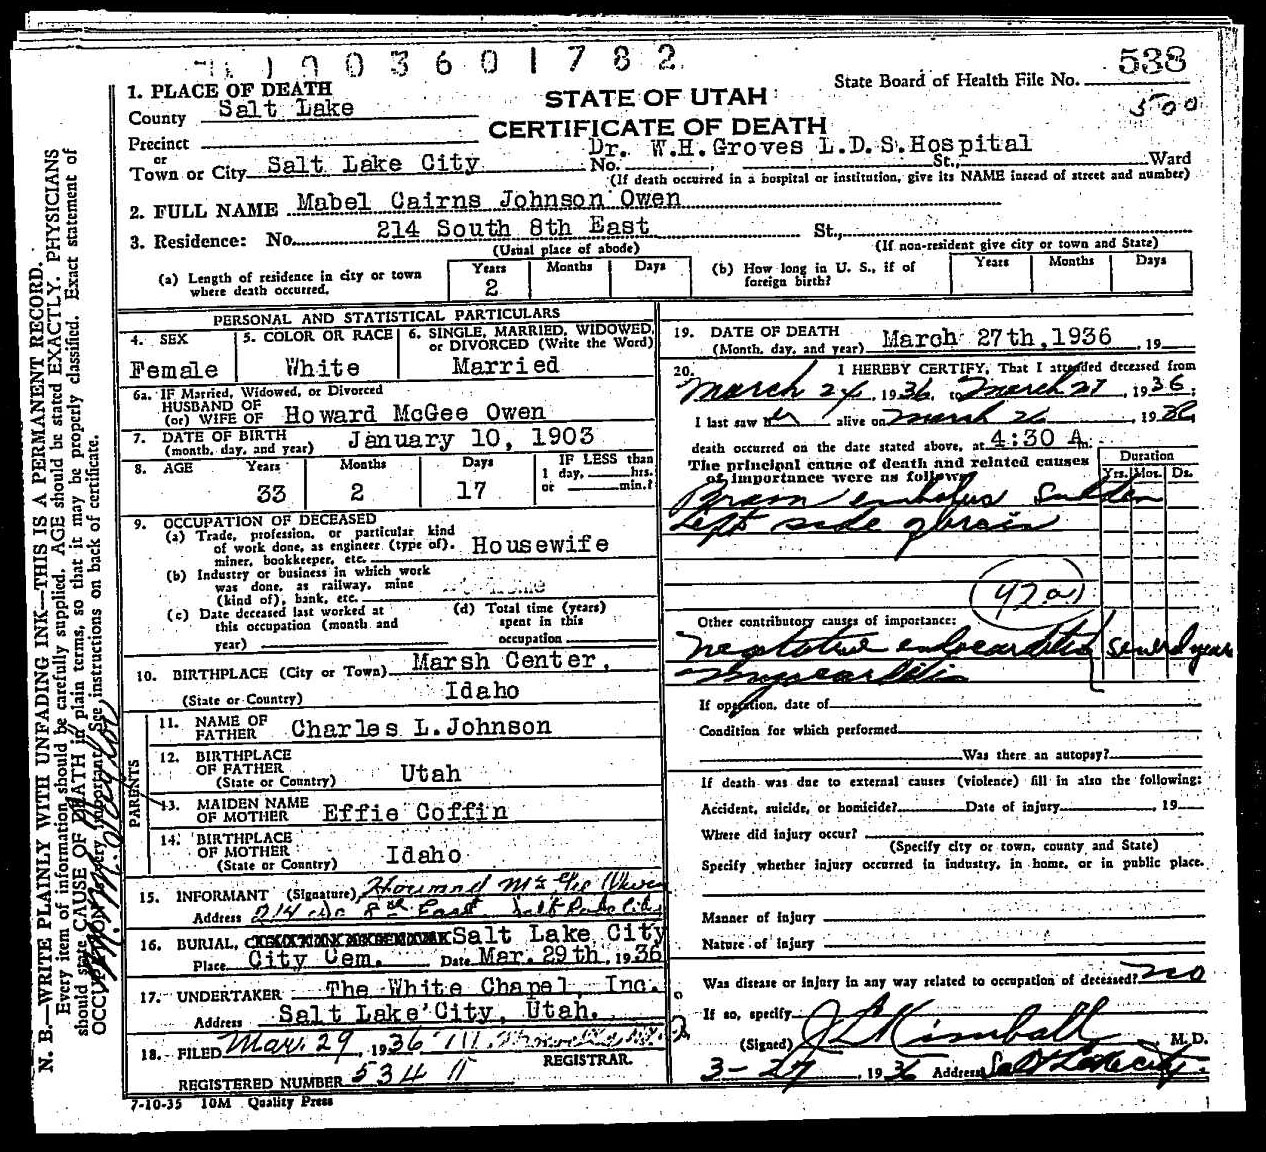 1003601782
538
State Board of Health File No.
500
1. PLACE OF DEATH
County Salt Lake
STATE OF UTAH
CERTIFICATE OF DEATH
Precinct
or
Town or City Salt Lake City
Dr. W.H. Groves L.D.S. Hospital
No. St., Ward
(If death occurred in a hospital or institution, give its NAME insead of street and number)
2. FULL NAME Mabel Cairns Johnson Owen
3. Residence: No. 214 South 8th East St.,
(Usual place of abode)
(If non-resident give city or town and State)
(a) Length of residence in city or town where death occurred.
Years Months Days
2
(b) How long in U. S., if of foreign birth?
Years Months Days
PERSONAL AND STATISTICAL PARTICULARS
4. SEX
Female
5. COLOR OR RACE
White
6. SINGLE, MARRIED, WIDOWED, or DIVORCED (Write the Word)
Married
6a. IF Married, Widowed, or Divorced
HUSBAND OF
(or) WIFE OF Howard McGee Owen
7. DATE OF BIRTH
(month, day, and year) January 10, 1903
8. AGE
Years Months Days
33 2 17
IF LESS than
1 day, hrs.
or min.?
9. OCCUPATION OF DECEASED
(a) Trade, profession, or particular kind
of work done, as engineer (type of).
miner, bookkeeper, etc. Housewife
(b) Industry or business in which work
was done, as railway, mine
(kind of), bank, etc. Home
(c) Date deceased last worked at
this occupation (month and
year)
(d) Total time (years)
spent in this
occupation
10. BIRTHPLACE (City or Town) Marsh Center,
(State or Country) Idaho
PARENTS
11. NAME OF
FATHER Charles L. Johnson
12. BIRTHPLACE
OF FATHER
(State or Country) Utah
13. MAIDEN NAME
OF MOTHER Effie Coffin
14. BIRTHPLACE
OF MOTHER
(State or Country) Idaho
15. INFORMANT (Signature) Howard McGee Owen
Address 214 So 8th East Salt Lake City
16. BURIAL, Salt Lake City
Place City Cem. Date Mar. 29th, 1936
17. UNDERTAKER The White Chapel, Inc.
Address Salt Lake City, Utah.
18. FILED Mar. 29, 1936
REGISTRAR.
REGISTERED NUMBER 534
7-10-35 10M Quality Press
19. DATE OF DEATH
(Month, day, and year) March 27th, 1936, 19
20. I HEREBY CERTIFY, That I attended deceased from
March 24, 1936, to March 27, 1936;
I last saw her alive on March 26, 1936
death occurred on the date stated above, at 4:30 A m.
The principal cause of death and related causes
of importance were as follows:
Duration
Yrs. Mos. Ds.
Brain embolus Sudden
Left side of brain
92a
Other contributory causes of importance:
Vegetative endocarditis several years
Myocarditis
If operation, date of
Condition for which performed
Was there an autopsy?
If death was due to external causes (violence) fill in also the following:
Accident, suicide, or homicide? Date of injury , 19
Where did injury occur?
(Specify city or town, county and State)
Specify whether injury occurred in industry, in home, or in public place.
Manner of injury
Nature of injury
Was disease or injury in any way related to occupation of deceased? no
If so, specify
(Signed) J L Kimball M. D.
3-27, 1936 Address Salt Lake City.
N. B.—WRITE PLAINLY WITH UNFADING INK—THIS IS A PERMANENT RECORD.
Every item of information should be carefully supplied. AGE should be stated EXACTLY. PHYSICIANS
should state CAUSE OF DEATH in plain terms, so that it may be properly classified. Exact statement of
OCCUPATION is very important. See instructions on back of certificate.